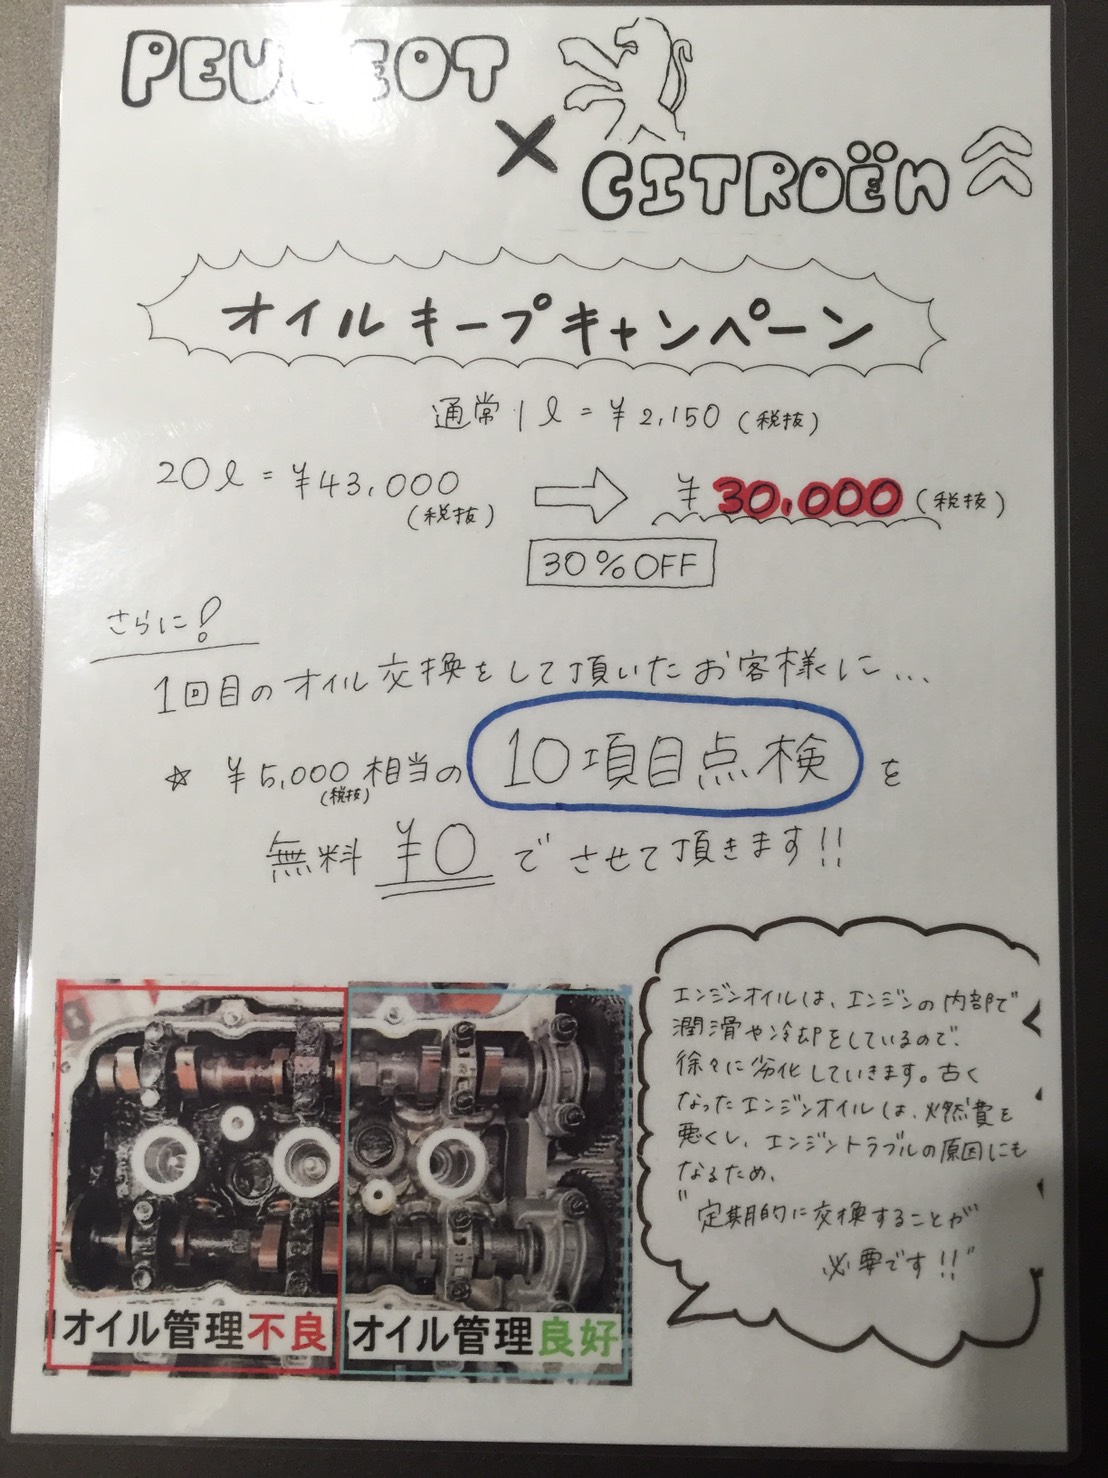 PEUGEOT
×
CITROËN
オイルキープキャンペーン
通常1ℓ=¥2,150(税抜)
20ℓ=¥43,000
(税抜)
¥30,000(税抜)
30%OFF
さらに!
1回目のオイル交換をして頂いたお客様に...
☆ ¥5,000相当の10項目点検を
(税抜)
無料¥0でさせて頂きます!!
エンジンオイルは、エンジンの内部で
潤滑や冷却をしているので、
徐々に劣化していきます。古く
なったエンジンオイルは、燃費を
悪くし、エンジントラブルの原因にも
なるため、
"定期的に交換することが
必要です!!"
オイル管理不良
オイル管理良好